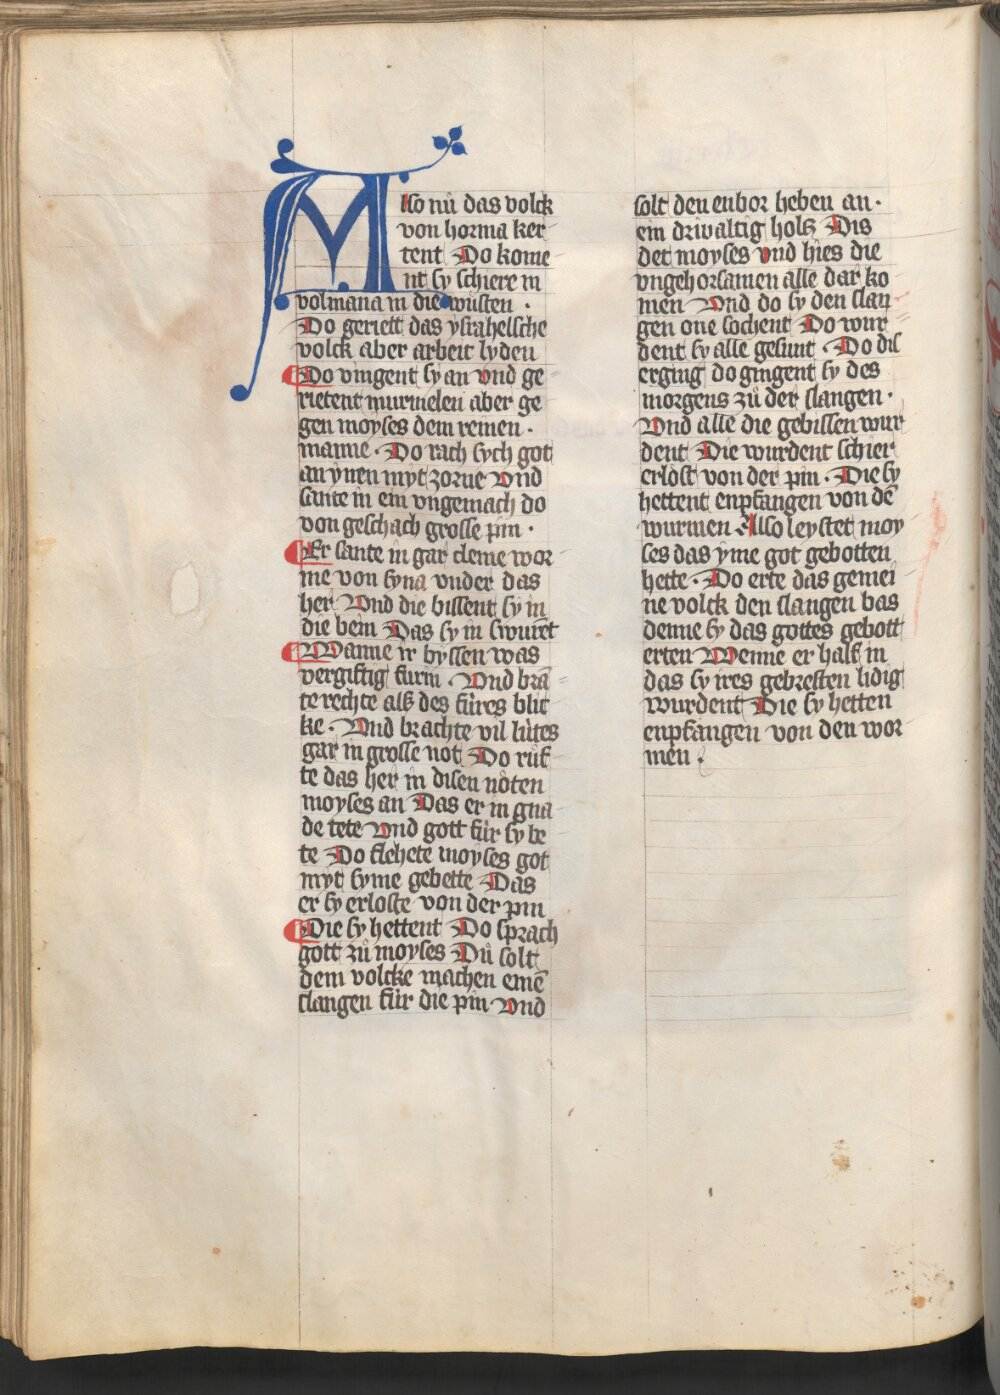 Also nů das volck
von horma ker
tent Do kome
nt sy schiere in
volmana in die wůsten ·
Do geriett das ysrahelsche
volck aber arbeit lyden
Do vingent sy an vnd ge
rietent murmelen aber ge
gen moyses dem reinen ·
manne · Do rach sych got
an ynen myt zorne Vnd
sante in ein vngemach do
von geschach grosse pin ·
Er sante in gar cleine wor
me von syna vnder das
her Vnd die bissent sy in
die bein Das sy in swurēt
Wanne ir byssen was
vergiftig furin · Vnd brā
te rechte als des fůres blic
ke · Vnd brachte vil lůtes
gar in grosse not Do růf
te das her in disen nöten
moyses an Das er in gna
de tete vnd gott für sy be
te Do flehete moyses got
myt syme gebette Das
er sy erloste von der pin
Die sy hettent Do sprach
gott zů moyses Dů solt
dem volcke machen einē
slangen für die pin Vnd
solt den enbor heben an ·
ein driualtig holtz Dis
det moyses vnd hies die
vngehorsamen alle dar ko
men Vnd do sy den slan
gen one sochent Do wur
dent sy alle gesunt · Do dis
erging do gingent sy des
morgens zů der slangen ·
Vnd alle die gebissen wur
dent Die wurdent schier
erlöst von der pin · Die sy
hettent enpfangen von dē
wurmen Also leystet moy
ses das yme got gebotten
hette · Do erte das gemei
ne volck den slangen bas
denne sy das gottes gebott
erten Wenne er half in
das sy ires gebresten lidig
wurdent Die sy hetten
enpfangen von den wor
men ·